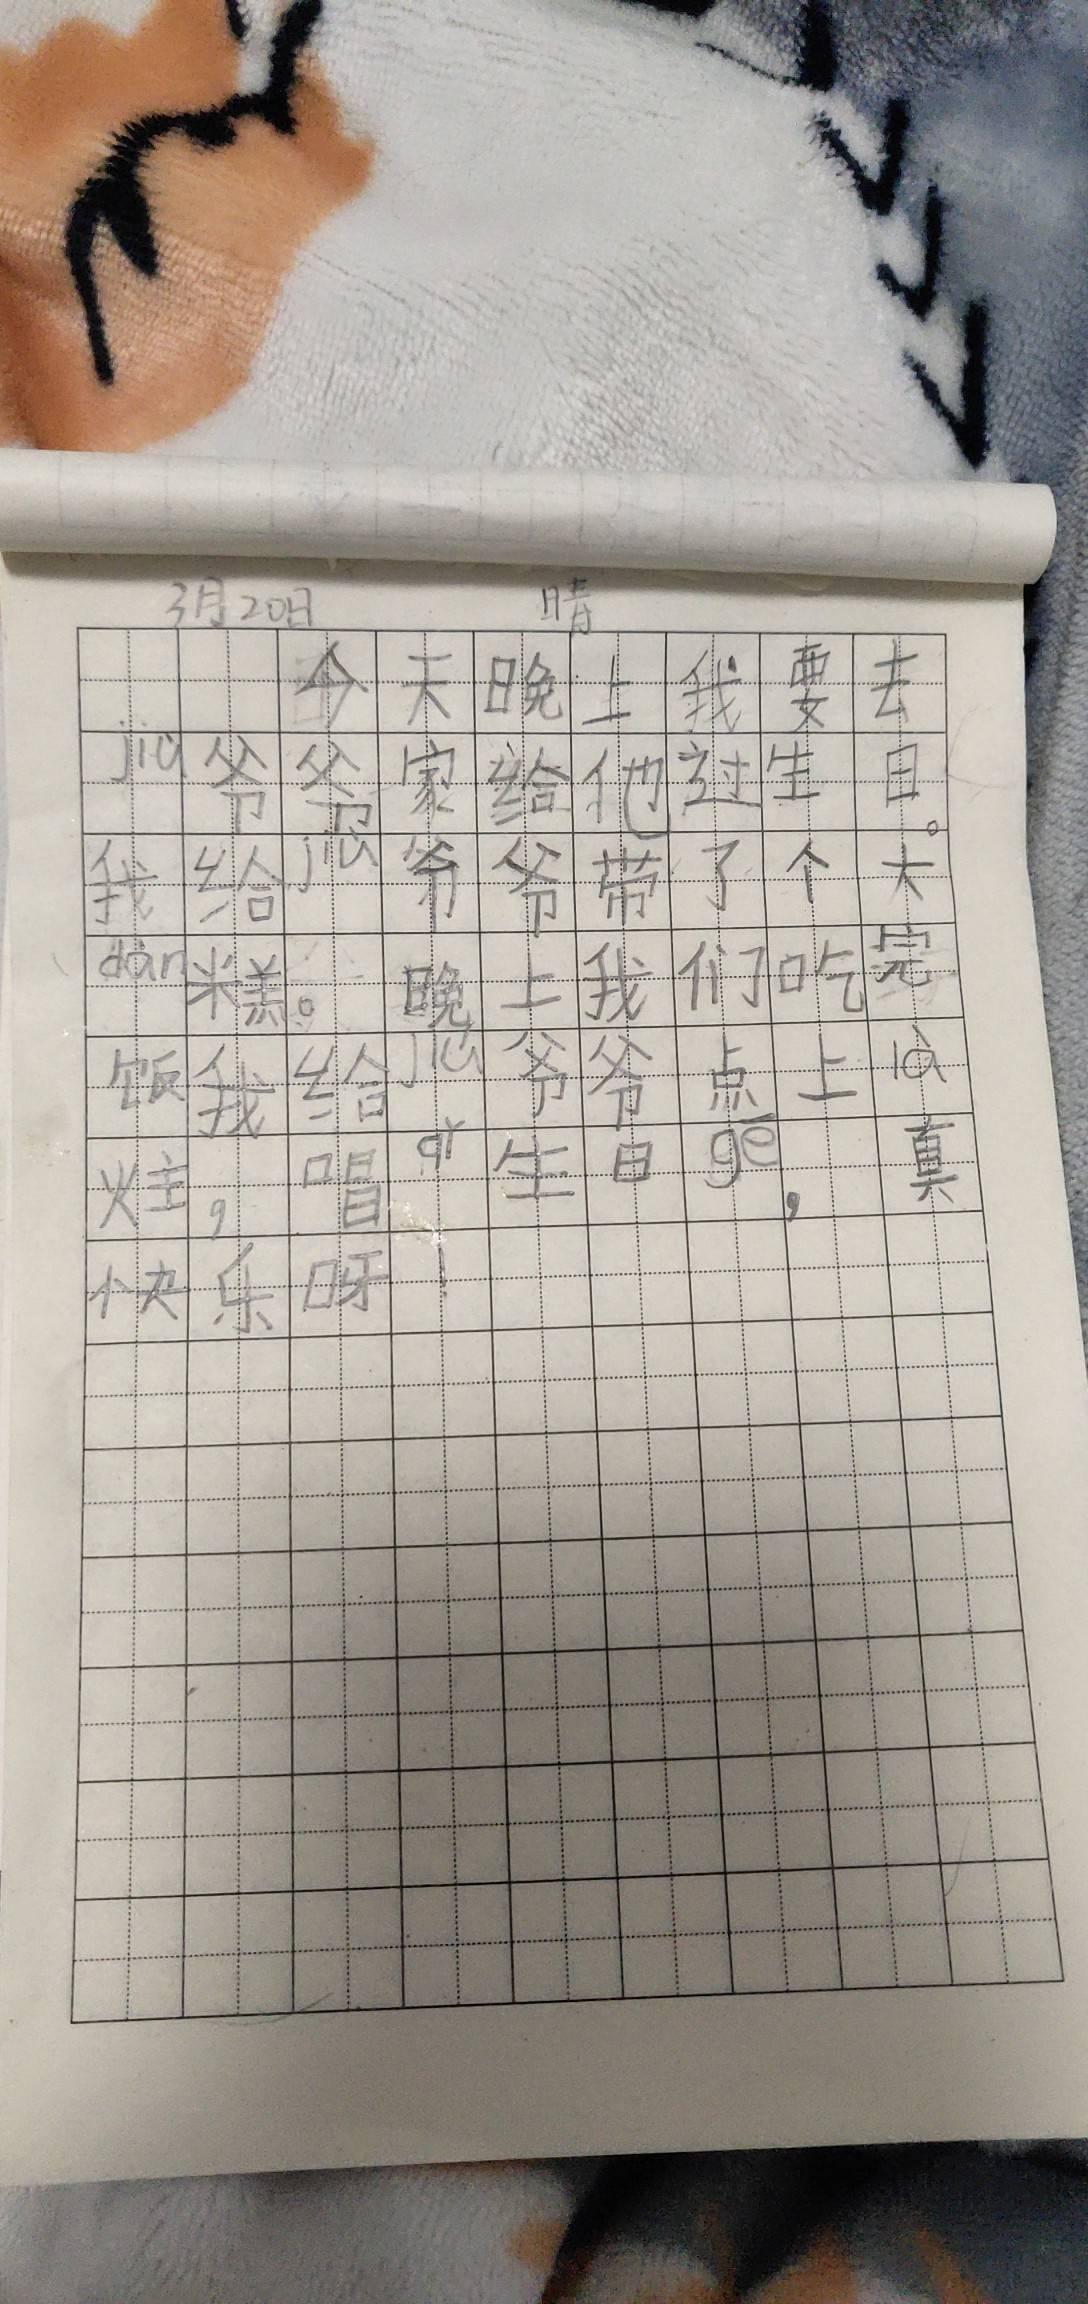 3月20日 晴
今天晚上我要去
jiù爷爷家给他过生日。
我给jiù爷爷带了个大
dàn糕。晚上我们吃完
饭我给jiù爷爷点上là
炷，唱qǐ生日gē，真
快乐呀！